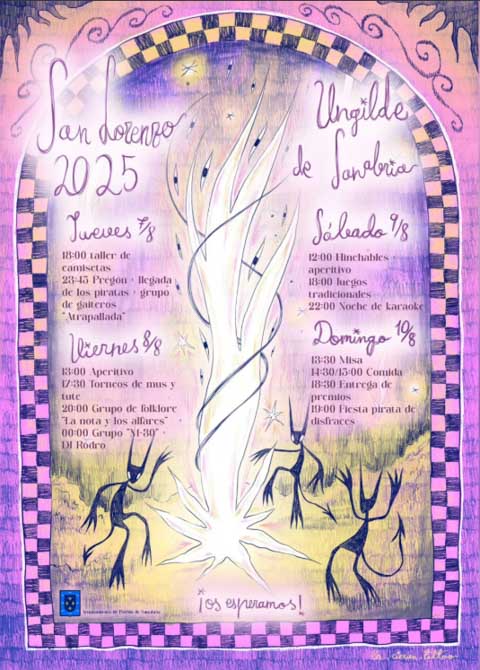 San Lorenzo
2025
Ungilde
de Sanabria
Jueves 7/8
18:00 taller de
camisetas
23:45 Pregón + llegada
de los piratas + grupo
de gaiteros
"Atrapallada"
Viernes 8/8
13:00 Aperitivo
17:30 Torneos de mus y
tute
20:00 Grupo de folklore
"La nota y los alfares"
00:00 Grupo "M-30" +
DJ Rodro
Sábado 9/8
12:00 Hinchables +
aperitivo
18:00 Juegos
tradicionales
22:00 Noche de karaoke
Domingo 10/8
13:30 Misa
14:30/15:00 Comida
18:30 Entrega de
premios
19:00 Fiesta pirata de
disfraces
¡os esperamos!
Ayuntamiento de Puebla de Sanabria